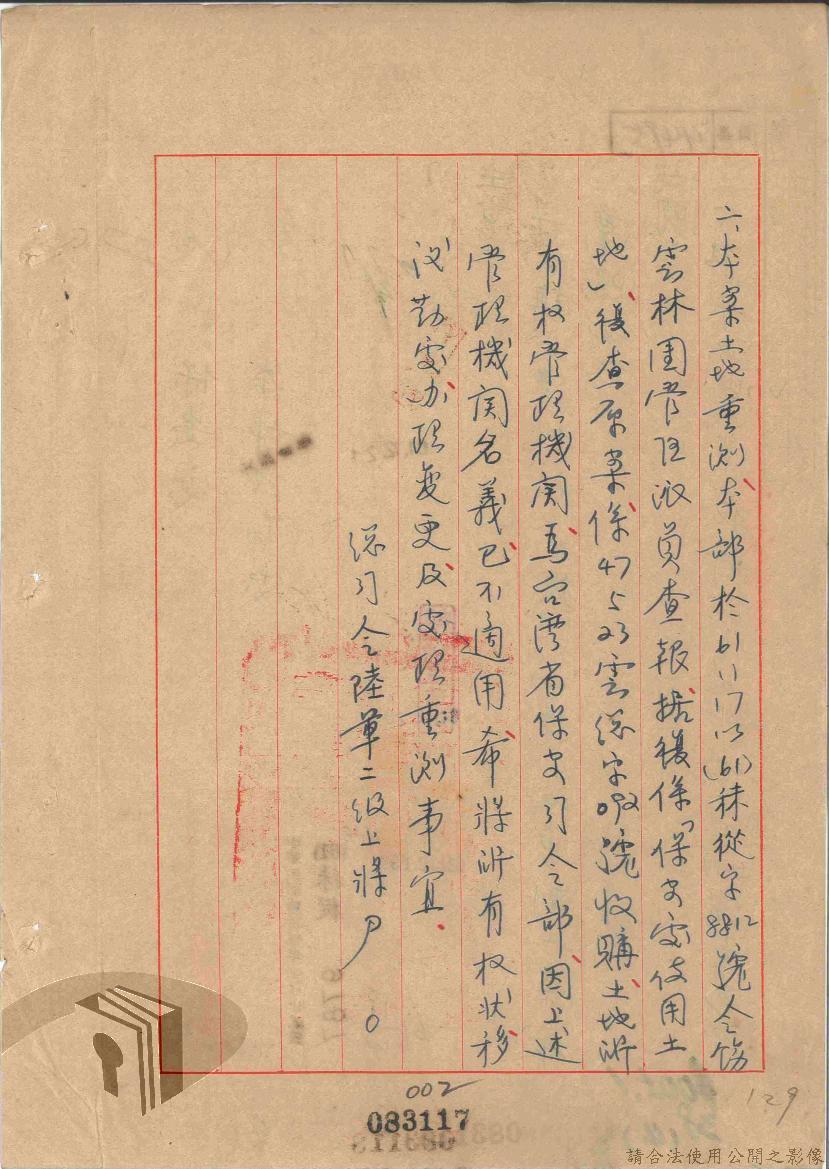 六、本案土地重測、本部於61 11 17以(61)秣從字8812號令飭
雲林團管區派員查報、據復係「保安處使用土
地」、復查原案係47 5 23雲總字 號收購土地所
有权管理機関、為台灣省保安司令部、因上述
管理機関名義已不適用、希將所有权狀移
勤處办理变更及處理重測事宜、
總司令陸軍二級上將尹 〇
002
083117
129
請合法使用公開之影像